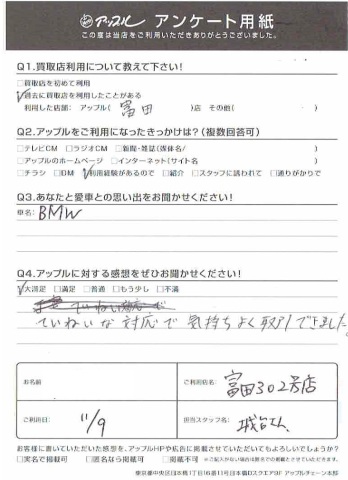 アップル アンケート用紙
この度は当店をご利用いただきありがとうございました。
Q1.買取店利用について教えて下さい!
□買取店を初めて利用
□過去に買取店を利用したことがある
利用した店部: アップル( 富田 )店 その他( )
Q2.アップルをご利用になったきっかけは?(複数回答可)
□テレビCM □ラジオCM □新聞・雑誌(媒体名/ )
□アップルのホームページ □インターネット(サイト名 )
□チラシ □DM □利用経験があるので □紹介 □スタッフに誘われて □通りがかりで
Q3.あなたと愛車との思い出をお聞かせください!
車名: BMW
Q4.アップルに対する感想をぜひお聞かせください!
□大満足 □満足 □普通 □もう少し □不満
ていねいな対応で気持ちよく取引できました。
お名前
ご利用店名: 富田302号店
ご利用日: 11/9
担当スタッフ名:
お客様に書いていただいた感想を、アップルHPや広告に掲載させていただいてもよろしいでしょうか?
□実名で掲載可 □匿名なら掲載可 □掲載不可 ※ご記入がない場合は匿名での掲載とさせていただきます。
東京都中央区日本橋1丁目16番11号日本橋Dスクエア9F アップルチェーン本部